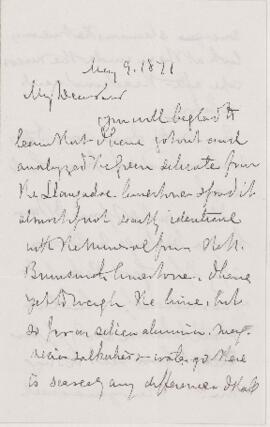 May 9. 1871
My Dear Sir
you will be glad to
learn that I have got out and
analyzed the green silicate from
the Llangadoc limestone & find it
almost if not exactly identical
with the mineral from the N.
Brunswick limestone. I have
yet to weigh the lime, but
so far as silica alumina, mag-
nesia alkalies & water go there
is scarcely any difference. I shall